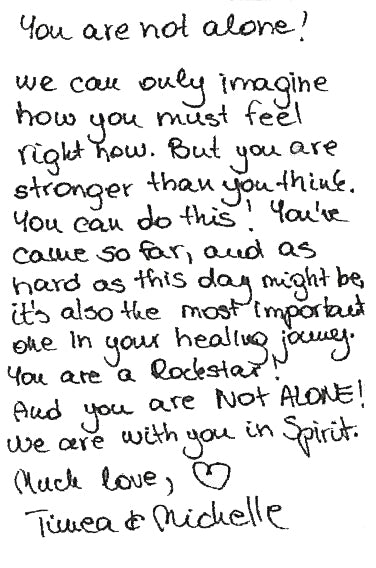 You are not alone!
we can only imagine
how you must feel
right now. But you are
stronger than you think.
You can do this! You've
came so far, and as
hard as this day might be,
it's also the most important
one in your healing jouney.
You are a Rockstar!
And you are Not ALONE!
we are with you in Spirit.
Much love, ♡
Timea & Michelle